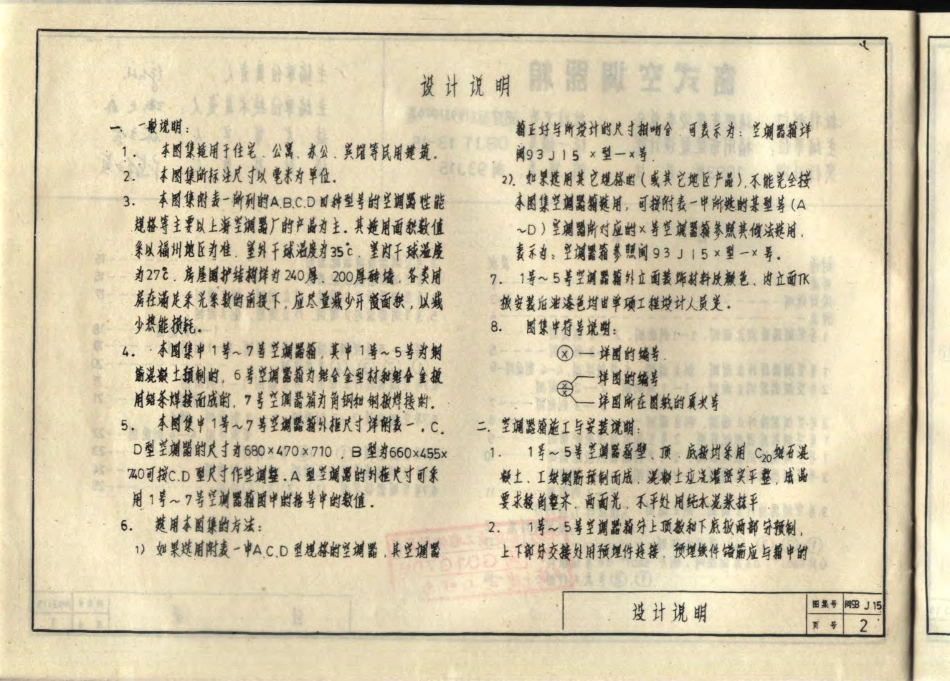 设计说明
一. 一般说明：
1. 本图集适用于住宅、公寓、办公、宾馆等民用建筑。
2. 本图集所标注尺寸以毫米为单位。
3. 本图集附表一所列的A.B.C.D四种型号的空调器性能
规格等主要以上海空调器厂的产品为主。其适用面积数值
采以福州地区为准. 室外干球温度为35℃. 室内干球温度
为27℃. 房屋围护结构为240厚. 200厚砖墙. 各类用
房在满足采光系数的前提下，应尽量减少开窗面积，以减
少热能损耗。
4. 本图集中1号～7号空调器箱，其中1号～5号为钢
筋混凝土预制的，6号空调器箱为铝合金型材和铝合金板
用铝条焊接而成的，7号空调器箱为角钢和钢板焊接的。
5. 本图集中1号～7号空调器箱外框尺寸详附表一，C、
D型空调器的尺寸为680×470×710，B型为660×455×
740可按C.D型尺寸作些调整。A型空调器的外框尺寸可采
用1号～7号空调器箱图中的括号中的数值。
6. 选用本图集的方法：
1) 如果选用附表一中A.C.D型规格的空调器，其空调器
箱正好与所设计的尺寸相吻合，可表示为：空调器箱详
闽93J15×型—×号.
2). 如果选用其它规格的（或其它地区产品），不能完全按
本图集空调器箱选用，可按附表一中所选的某型号（A
～D）空调器所对应的×号空调器箱参照其做法选用，
表示为：空调器箱参照闽93J15×型—×号。
7. 1号～5号空调器箱外立面装饰材料及颜色、内立面TK
板安装后油漆色均由单项工程设计人员定。
8. 图集中符号说明：
ⓧ — 详图的编号.
— 详图的编号
— 详图所在图纸的页次号
二. 空调器箱施工与安装说明：
1. 1号～5号空调器箱壁、顶、底板均采用C20细石混
凝土、工级钢筋预制而成，混凝土应浇灌密实平整，成品
要求棱角整齐、两面光、不平处用纯水泥浆抹平.
2. 1号～5号空调器箱分上顶板和下底板两部分预制，
上下部分交接处用预埋件连接，预埋铁件锚筋应与箱中的
设计说明
图集号 闽93 J 15
页 号 2